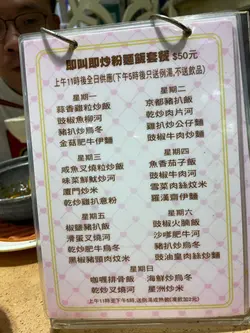 即叫即炒粉麵飯套餐 $50元
上午11時後全日供應(下午5時後只送例湯,不送飲品)
星期一
蒜香雞粒炒飯
豉椒魚柳河
豬扒炒烏冬
金菇肥牛伊麵
星期二
京都豬扒飯
雞扒炒公仔麵
乾炒肉片河
豉椒牛肉炒麵
星期三
咸魚叉燒粒炒飯
味菜鮮魷炒河
廈門炒米
乾炒雞扒意粉
星期四
魚香茄子飯
豉椒牛肉河
雪菜肉絲炆米
羅漢齋伊麵
星期五
椒鹽豬扒飯
滑蛋叉燒河
乾炒肥牛烏冬
黑椒豬頸肉炆米
星期六
豉椒火腩飯
沙嗲肥牛河
豬扒炒烏冬
豉油皇肉絲炒麵
星期日
咖喱排骨飯
乾炒叉燒河
海鮮炒烏冬
星洲炒米